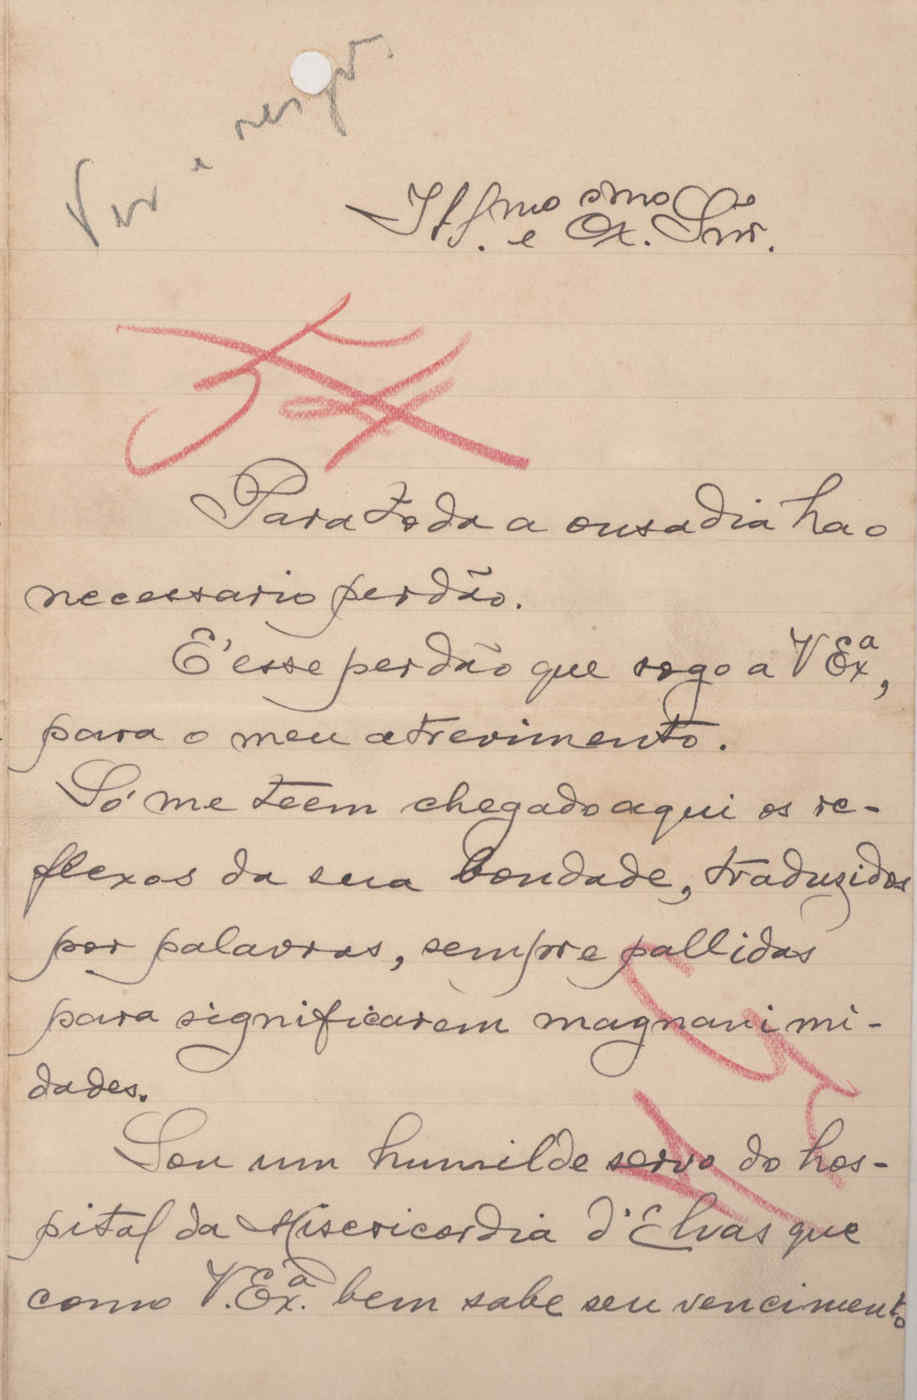 Ver e resp.
Illmo e Ex.mo Snr.
54
Para toda a ousadia ha o
necessario perdão.
E' esse perdão que rogo a V Exª,
para o meu atrevimento.
Só me teem chegado aqui os re-
flexos da sua bondade, traduzidos
por palavras, sempre pallidas
para significarem magnanimi-
dades.
Sou um humilde servo do hos-
pital da Misericordia d'Elvas que
como V. Ex.ª bem sabe seu vencimento